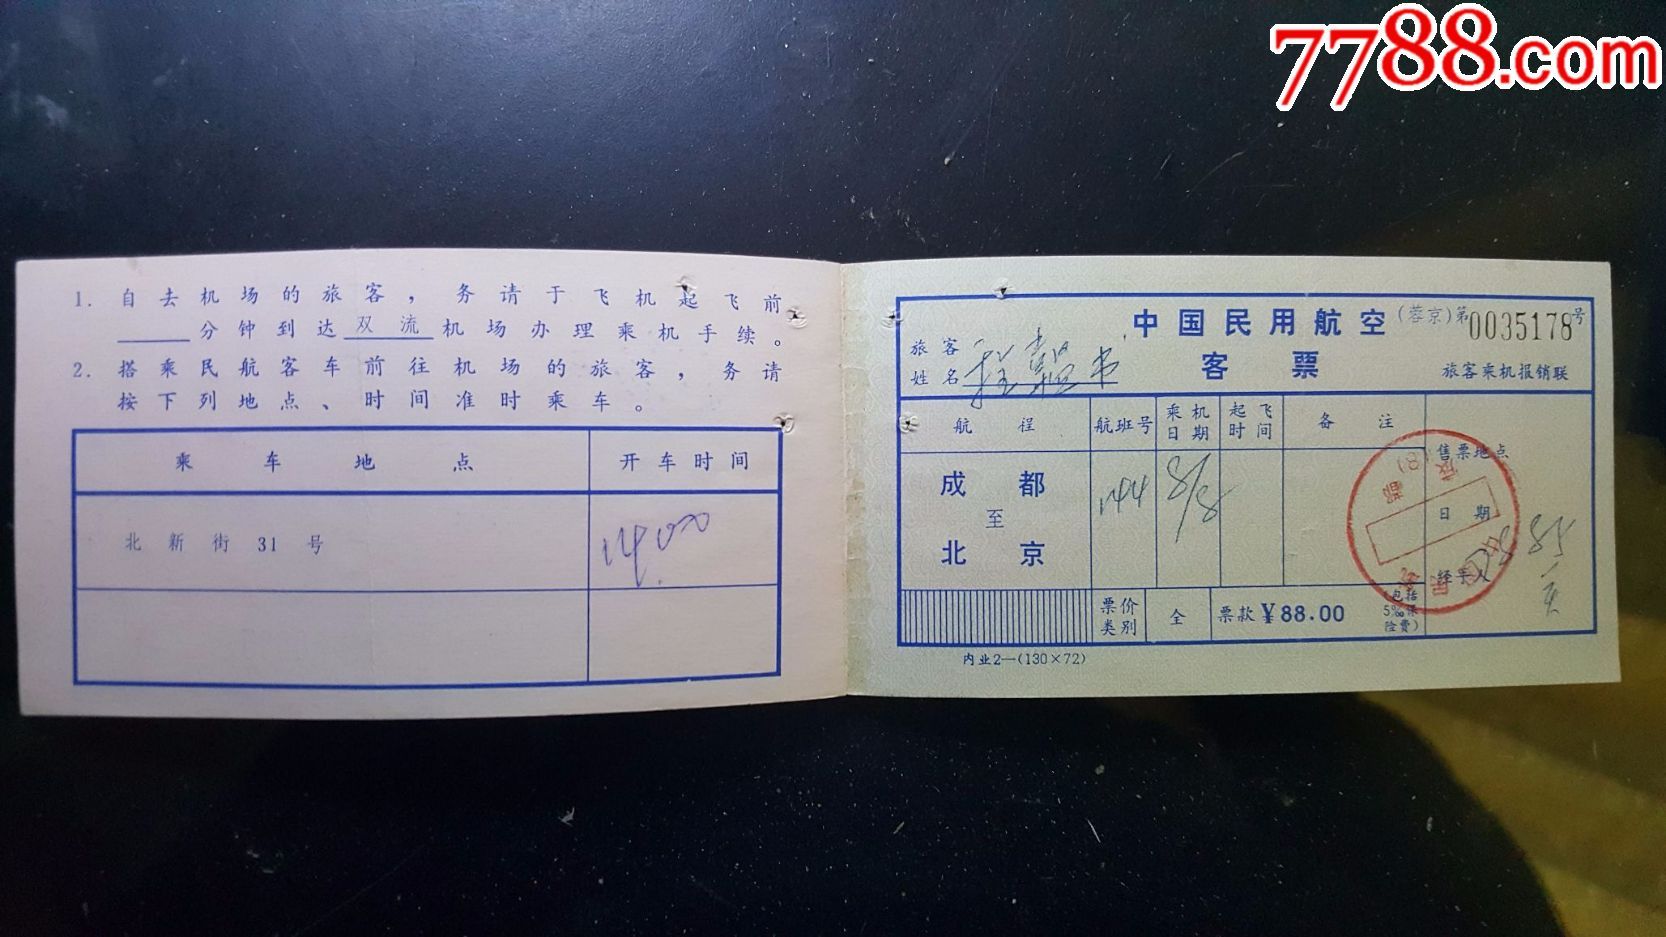 7788.com
1. 自去机场的旅客，务请于飞机起飞前
____分钟到达 双流 机场办理乘机手续。
2. 搭乘民航客车前往机场的旅客，务请
按下列地点、时间准时乘车。
乘车地点 开车时间
北新街31号 14,00
中国民用航空 (蓉京)第0035178号
客票
旅客
姓名
旅客乘机报销联
航程 航班号 乘机日期 起飞时间 备注 售票地点
成都
至
北京
144 8/8
日期
经手人
票价类别 全 票款 ¥88.00 (包括5‰保险费)
内业2—(130×72)